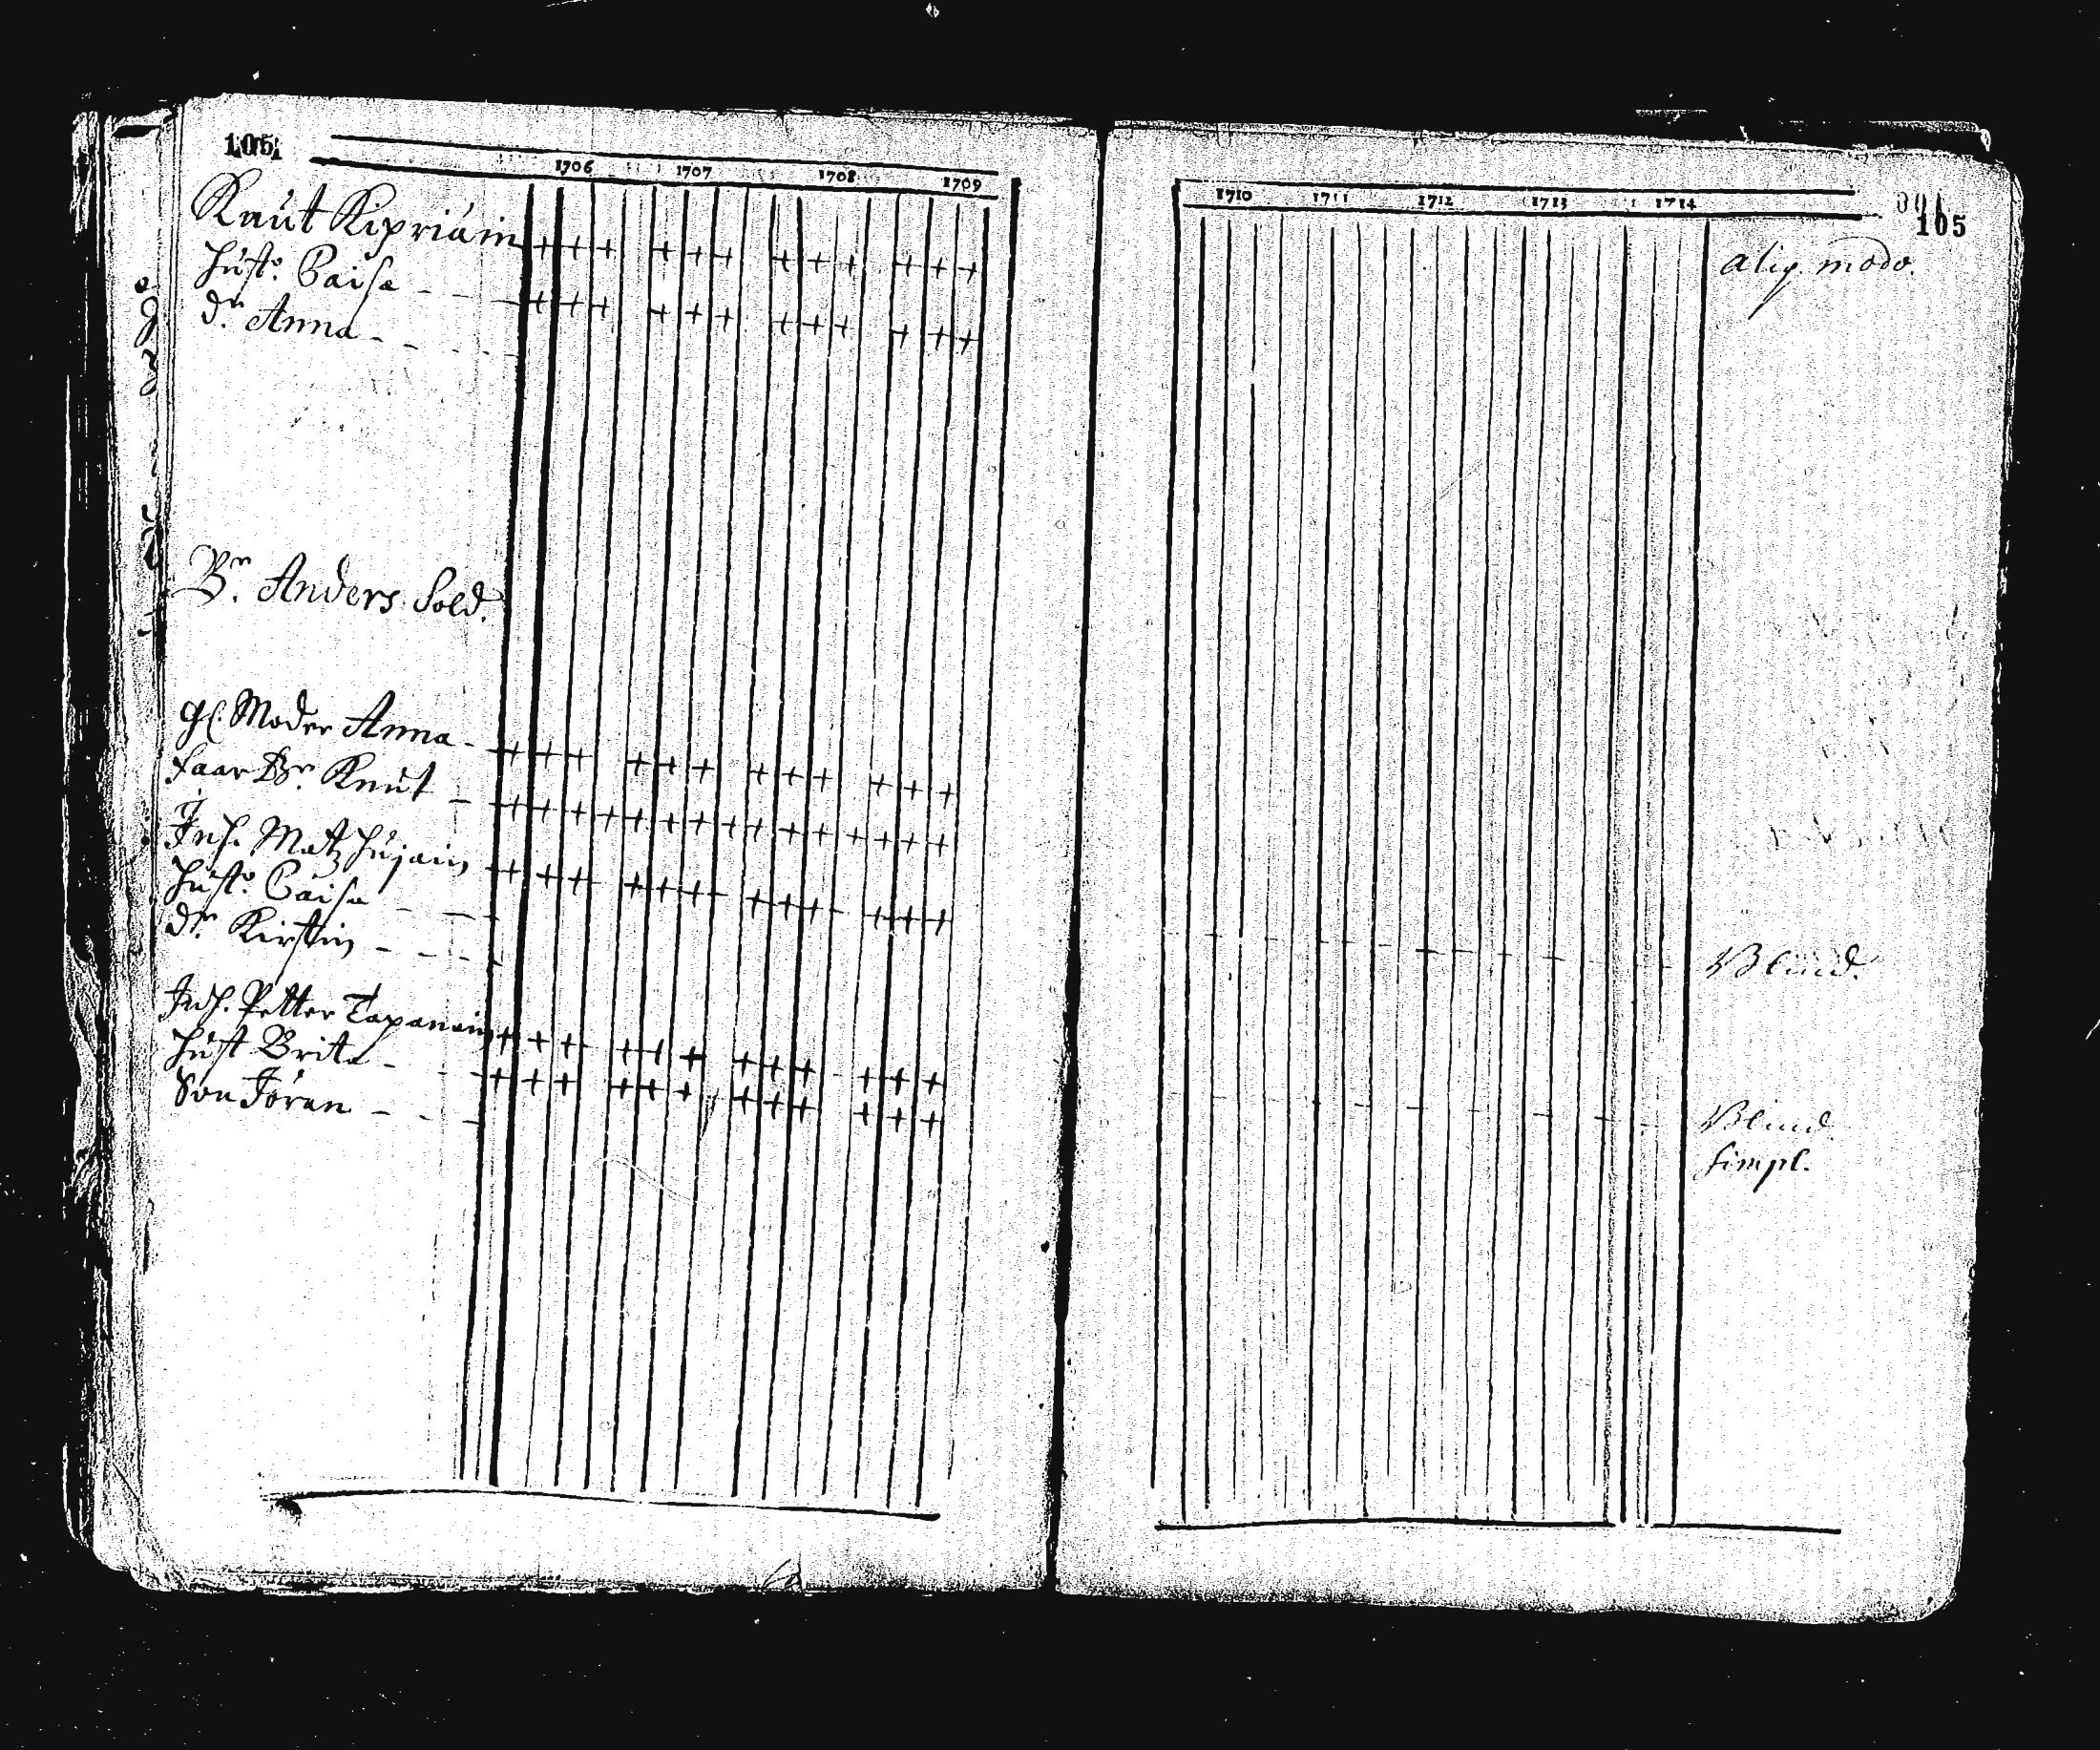 105
1706 1707 1708 1709
Knut Kipriain
Hust. Caisa
dr. Anna
Br. Anders Sold.
gl. Moder Anna
Faar Br. Knut
Inh. Matz Hujain
Hust. Caisa
dr. Kirstin
Inh. Petter Tapanain
Hust Brita
Son Jöran
1710 1711 1712 1713 1714
105
aliq. modo.
Blind.
Blind
simpl.